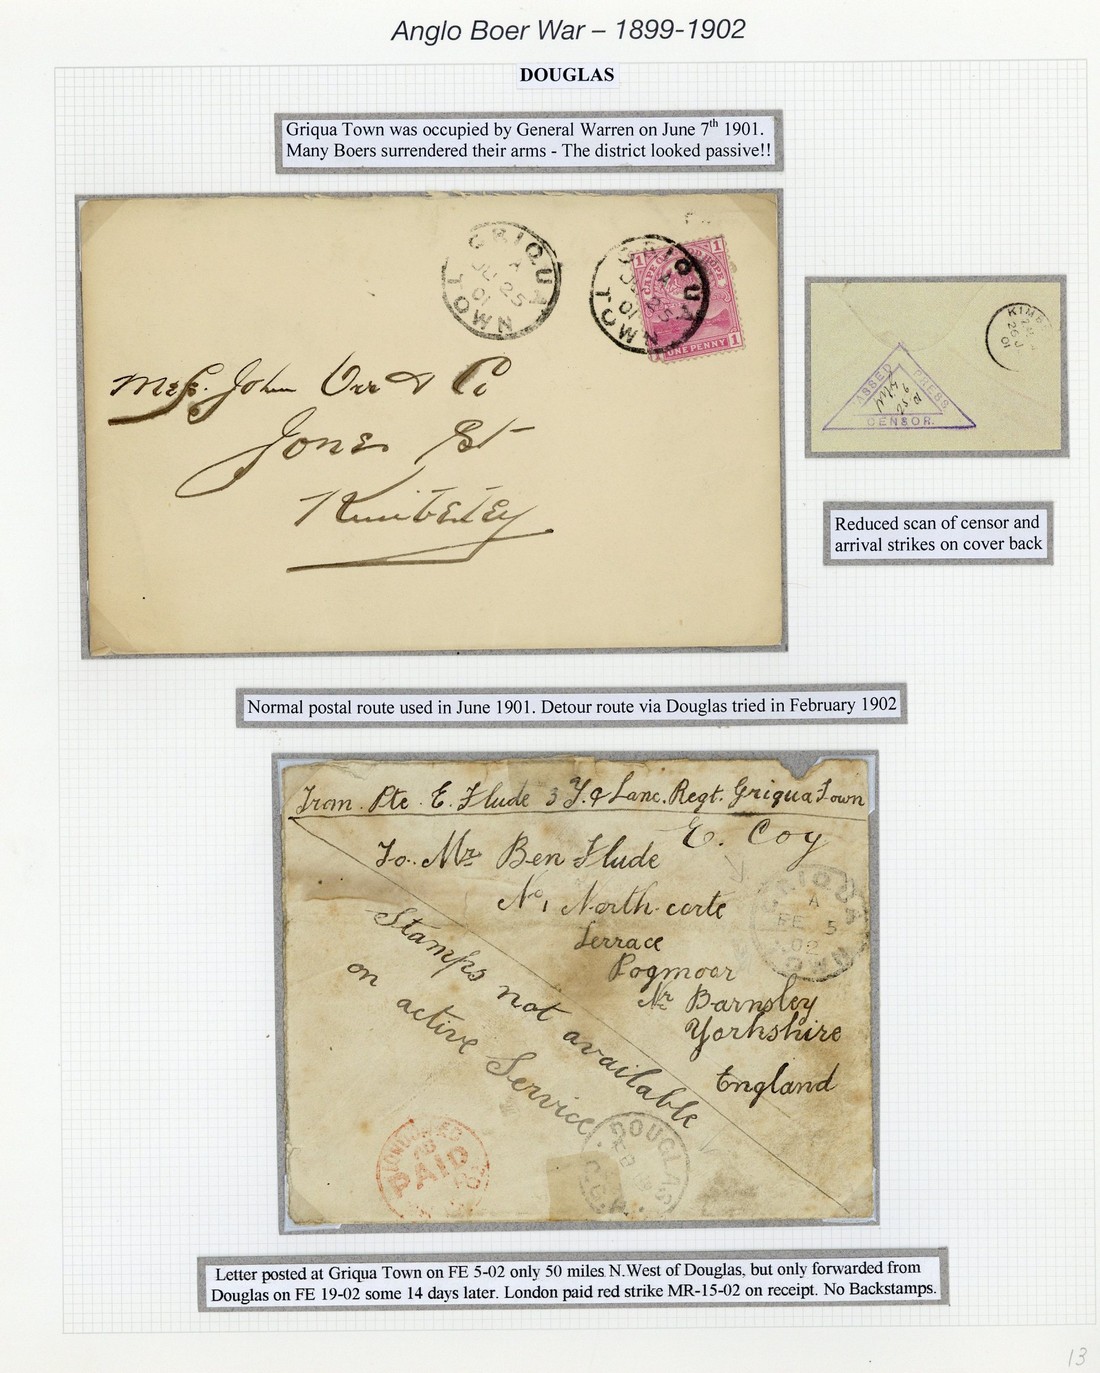 Anglo Boer War – 1899-1902
DOUGLAS
Griqua Town was occupied by General Warren on June 7th 1901.
Many Boers surrendered their arms - The district looked passive!!
GRIQUA TOWN
A
JU 25
01
GRIQUA TOWN
A
25
01
CAPE OF GOOD HOPE
1 1
ONE PENNY 1
Messrs. John Orr & Co
Jones St
Kimberley
KIMB
26 J
01
PASSED PRESS
CENSOR.
25 6
01
Reduced scan of censor and
arrival strikes on cover back
Normal postal route used in June 1901. Detour route via Douglas tried in February 1902
From. Pte. E. Flude 3 Y. & Lanc. Regt. Griqua Town
E. Coy
To. Mr Ben Flude
No 1 North-corte
Terrace
Pogmoor
Nr Barnsley
Yorkshire
England
Stamps not available
on active Service.
GRIQUA
A
FE 5
02
LONDON
PAID
DOUGLAS
C.G.H.
Letter posted at Griqua Town on FE 5-02 only 50 miles N.West of Douglas, but only forwarded from
Douglas on FE 19-02 some 14 days later. London paid red strike MR-15-02 on receipt. No Backstamps.
13